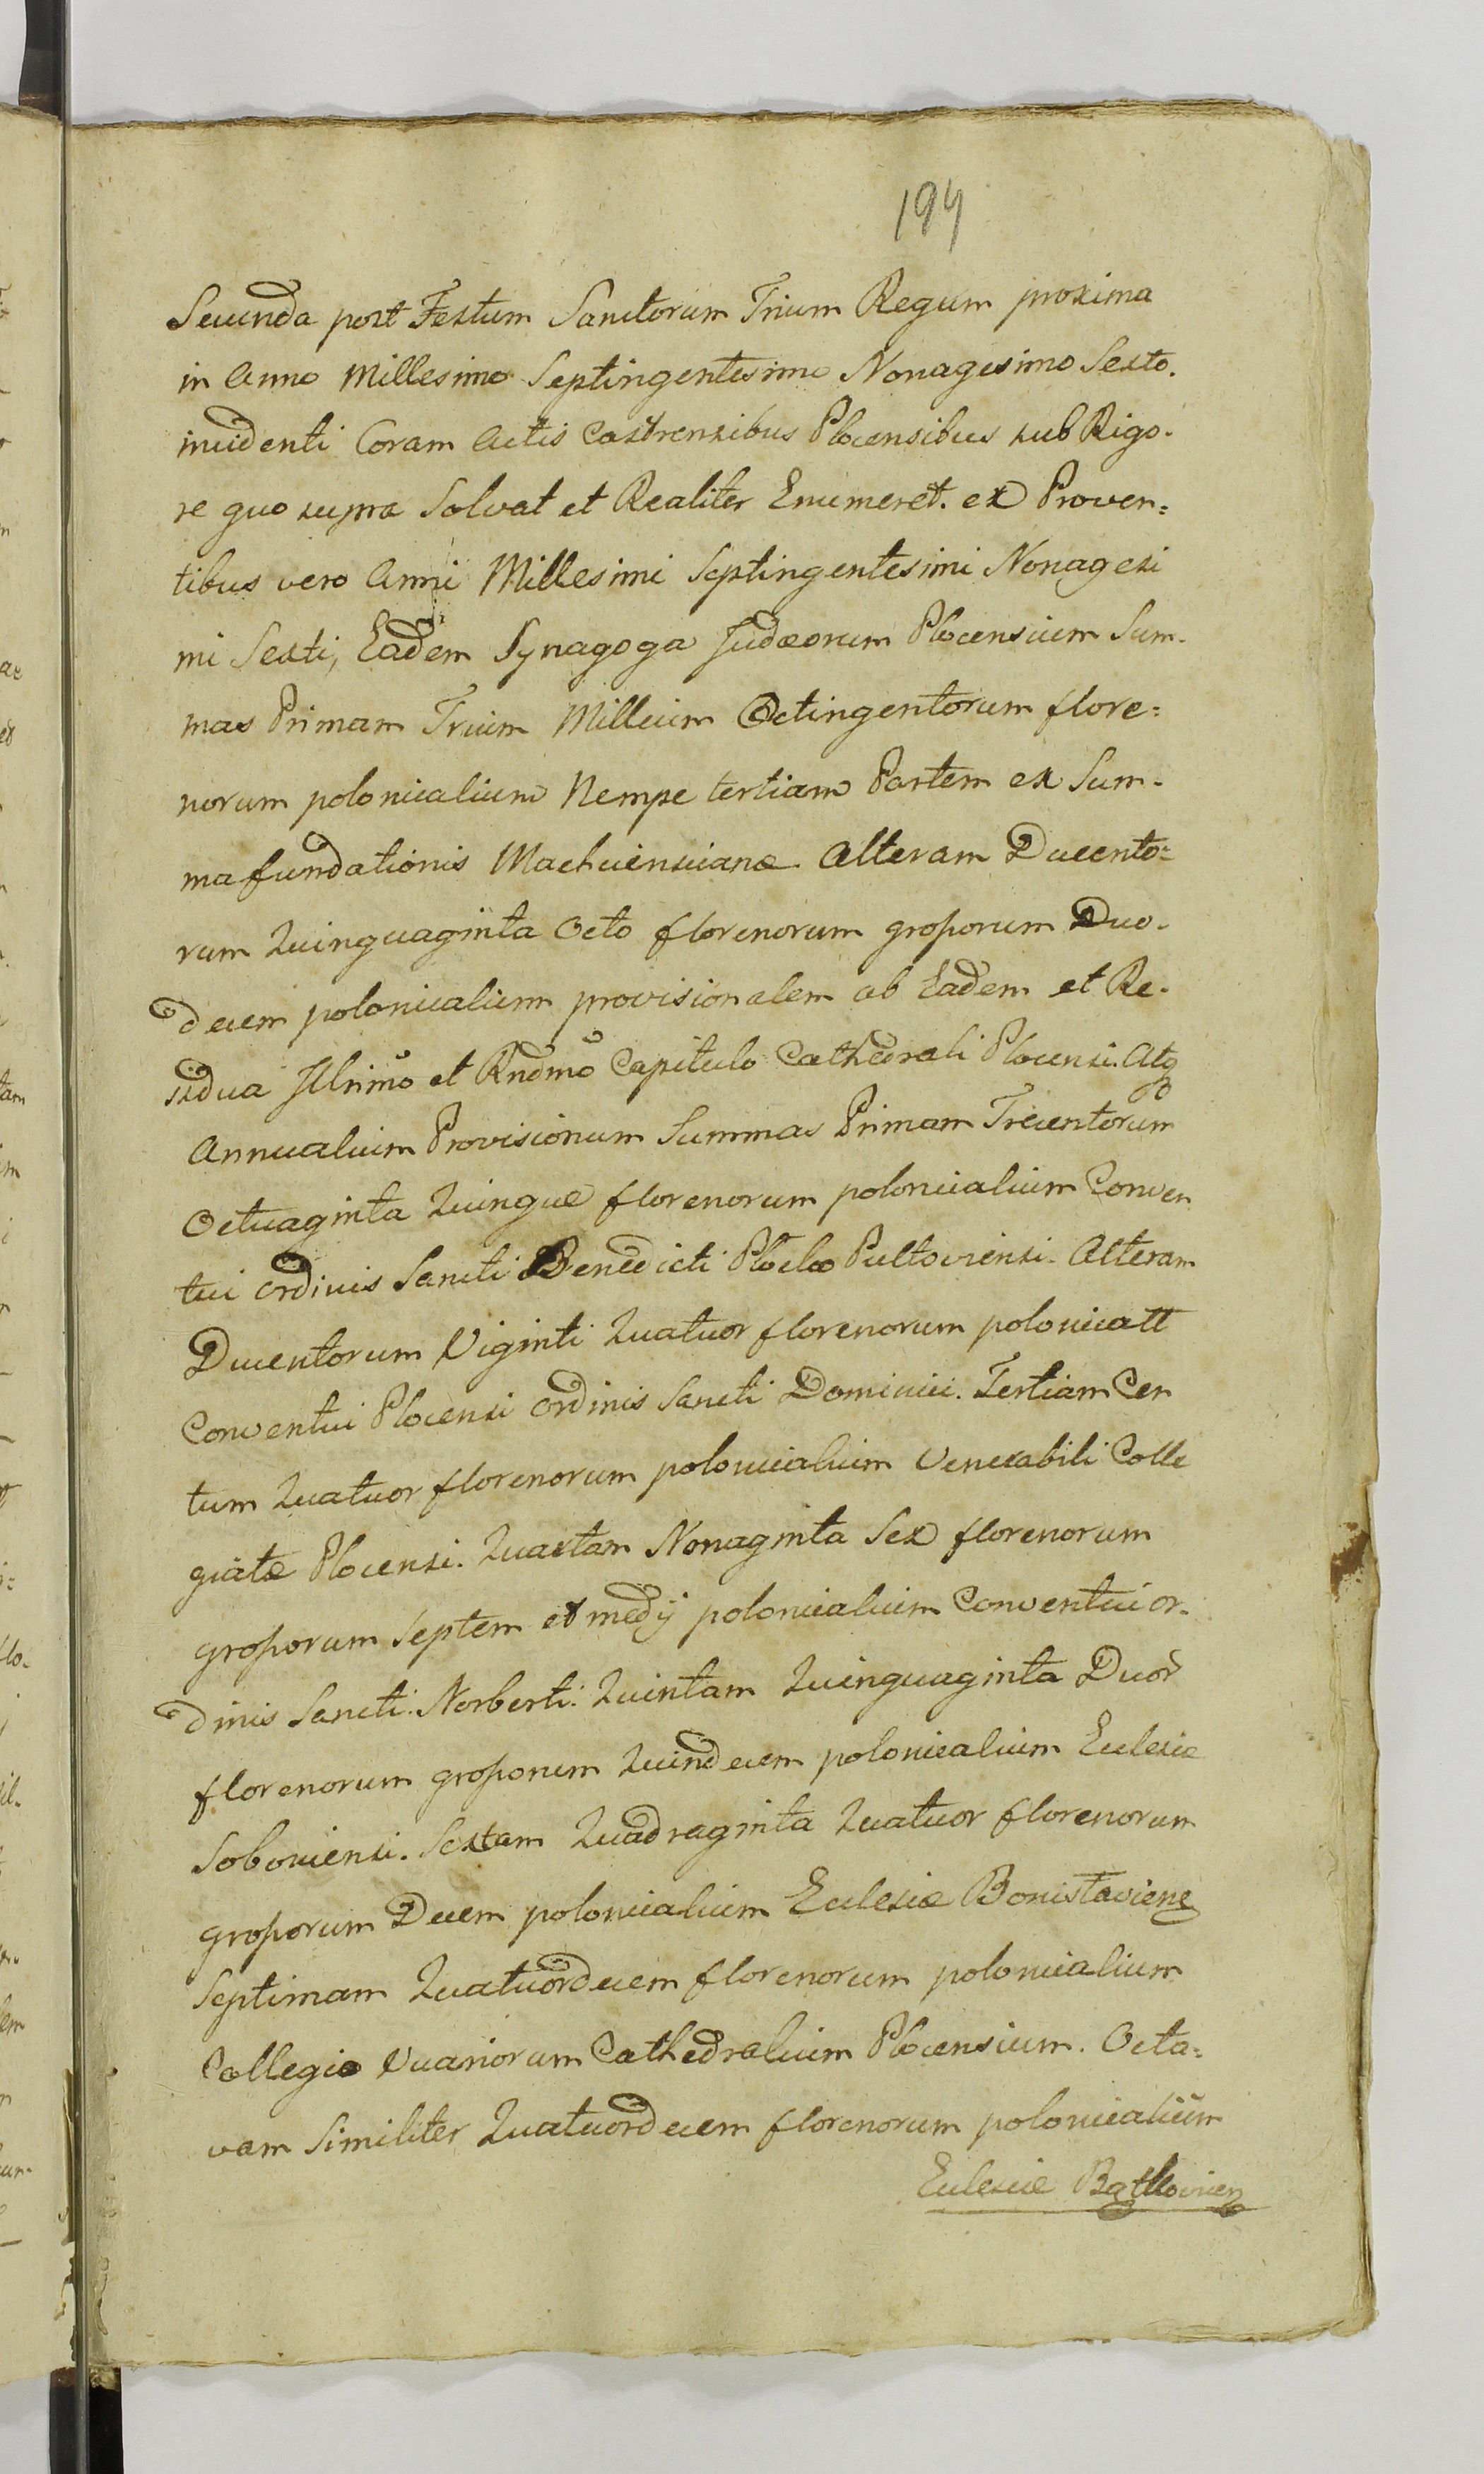 194
Secunda post Festum Sanctorum Trium Regum proxima
in Anno Millesimo Septingentesimo Nonagesimo Sexto.
incidenti Coram Actis Castrensibus Plocensibus sub Rigo-
re quo supra Solvat et Realiter Enumeret. ex Proven=
tibus vero Anni Millesimi Septingentesimi Nonagesi
mi Sexti, Eadem Synagoga Judæorum Plocensium Sum-
mas Primam Trium Millium Octingentorum flore=
norum polonicalium Nempe tertiam Partem ex Sum-
ma fundationis Machcienscianæ. Alteram Ducento=
rum Quinquaginta Octo florenorum grossorum Duo-
decem polonicalium provisionalem ab Eadem et Re-
sidua Illrimo et Rndmo Capitulo Cathedrali Plocensi. Atq
Annualium Provisionum Summas Primam Trecentorum
Octuaginta Quinque florenorum polonicalium Conven
tui Ordinis Sancti Benedicti Pultoviensi. Alteram
Ducentorum Viginti Quatuor florenorum polonicall
Conventui Plocensi Ordinis Sancti Dominici. Tertiam Cen
tum Quatuor florenorum polonicalium Venerabili Colle
giatæ Plocensi. Quartam Nonaginta Sex florenorum
grossorum Septem et medij polonicalium Conventui or-
dinis Sancti Norberti. Quintam Quinquaginta Duor
florenorum grossorum Quindecem polonicalium Eclesiæ
Soboviensi. Sextam Quadraginta Quatuor florenorum
grossorum Decem polonicalium Eclesiæ Bonislavien
Septimam Quatuordecem florenorum polonicalium
Collegio Vicariorum Cathedralium Plocensium. Octa=
vam Similiter Quatuordecem florenorum polonicalium
Eclesiæ